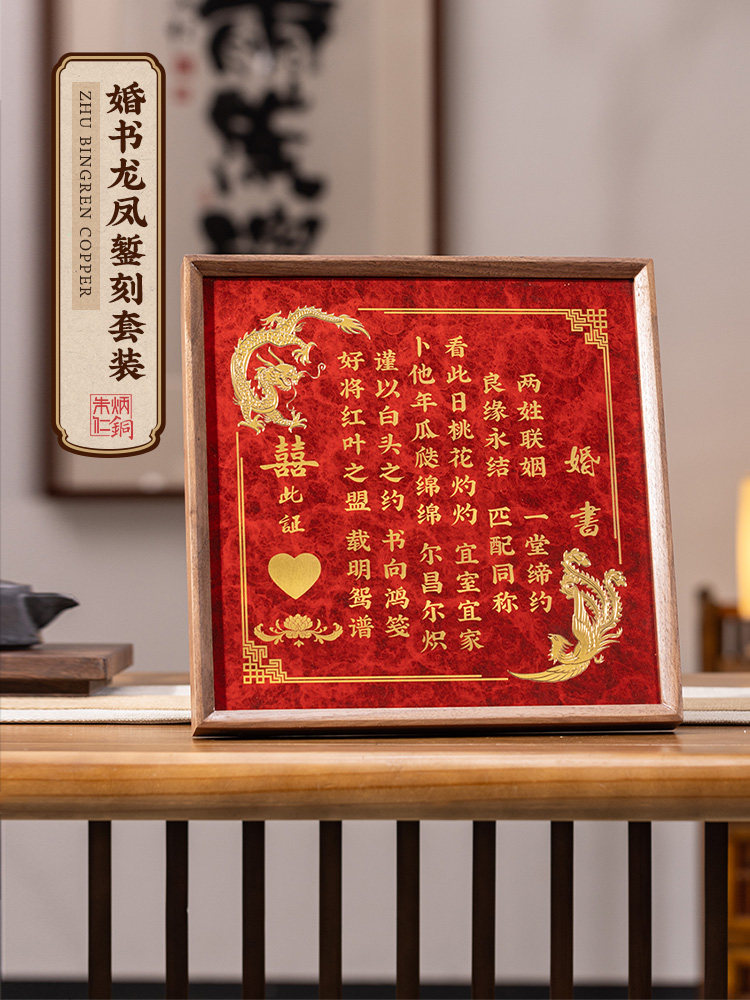 婚书龙凤錾刻套装
ZHU BINGREN COPPER
朱炳
仁銅
婚書
两姓联姻 一堂缔约
良缘永结 匹配同称
看此日桃花灼灼 宜室宜家
卜他年瓜瓞绵绵 尔昌尔炽
谨以白头之约 书向鸿笺
好将红叶之盟 载明鸳谱
囍
此証